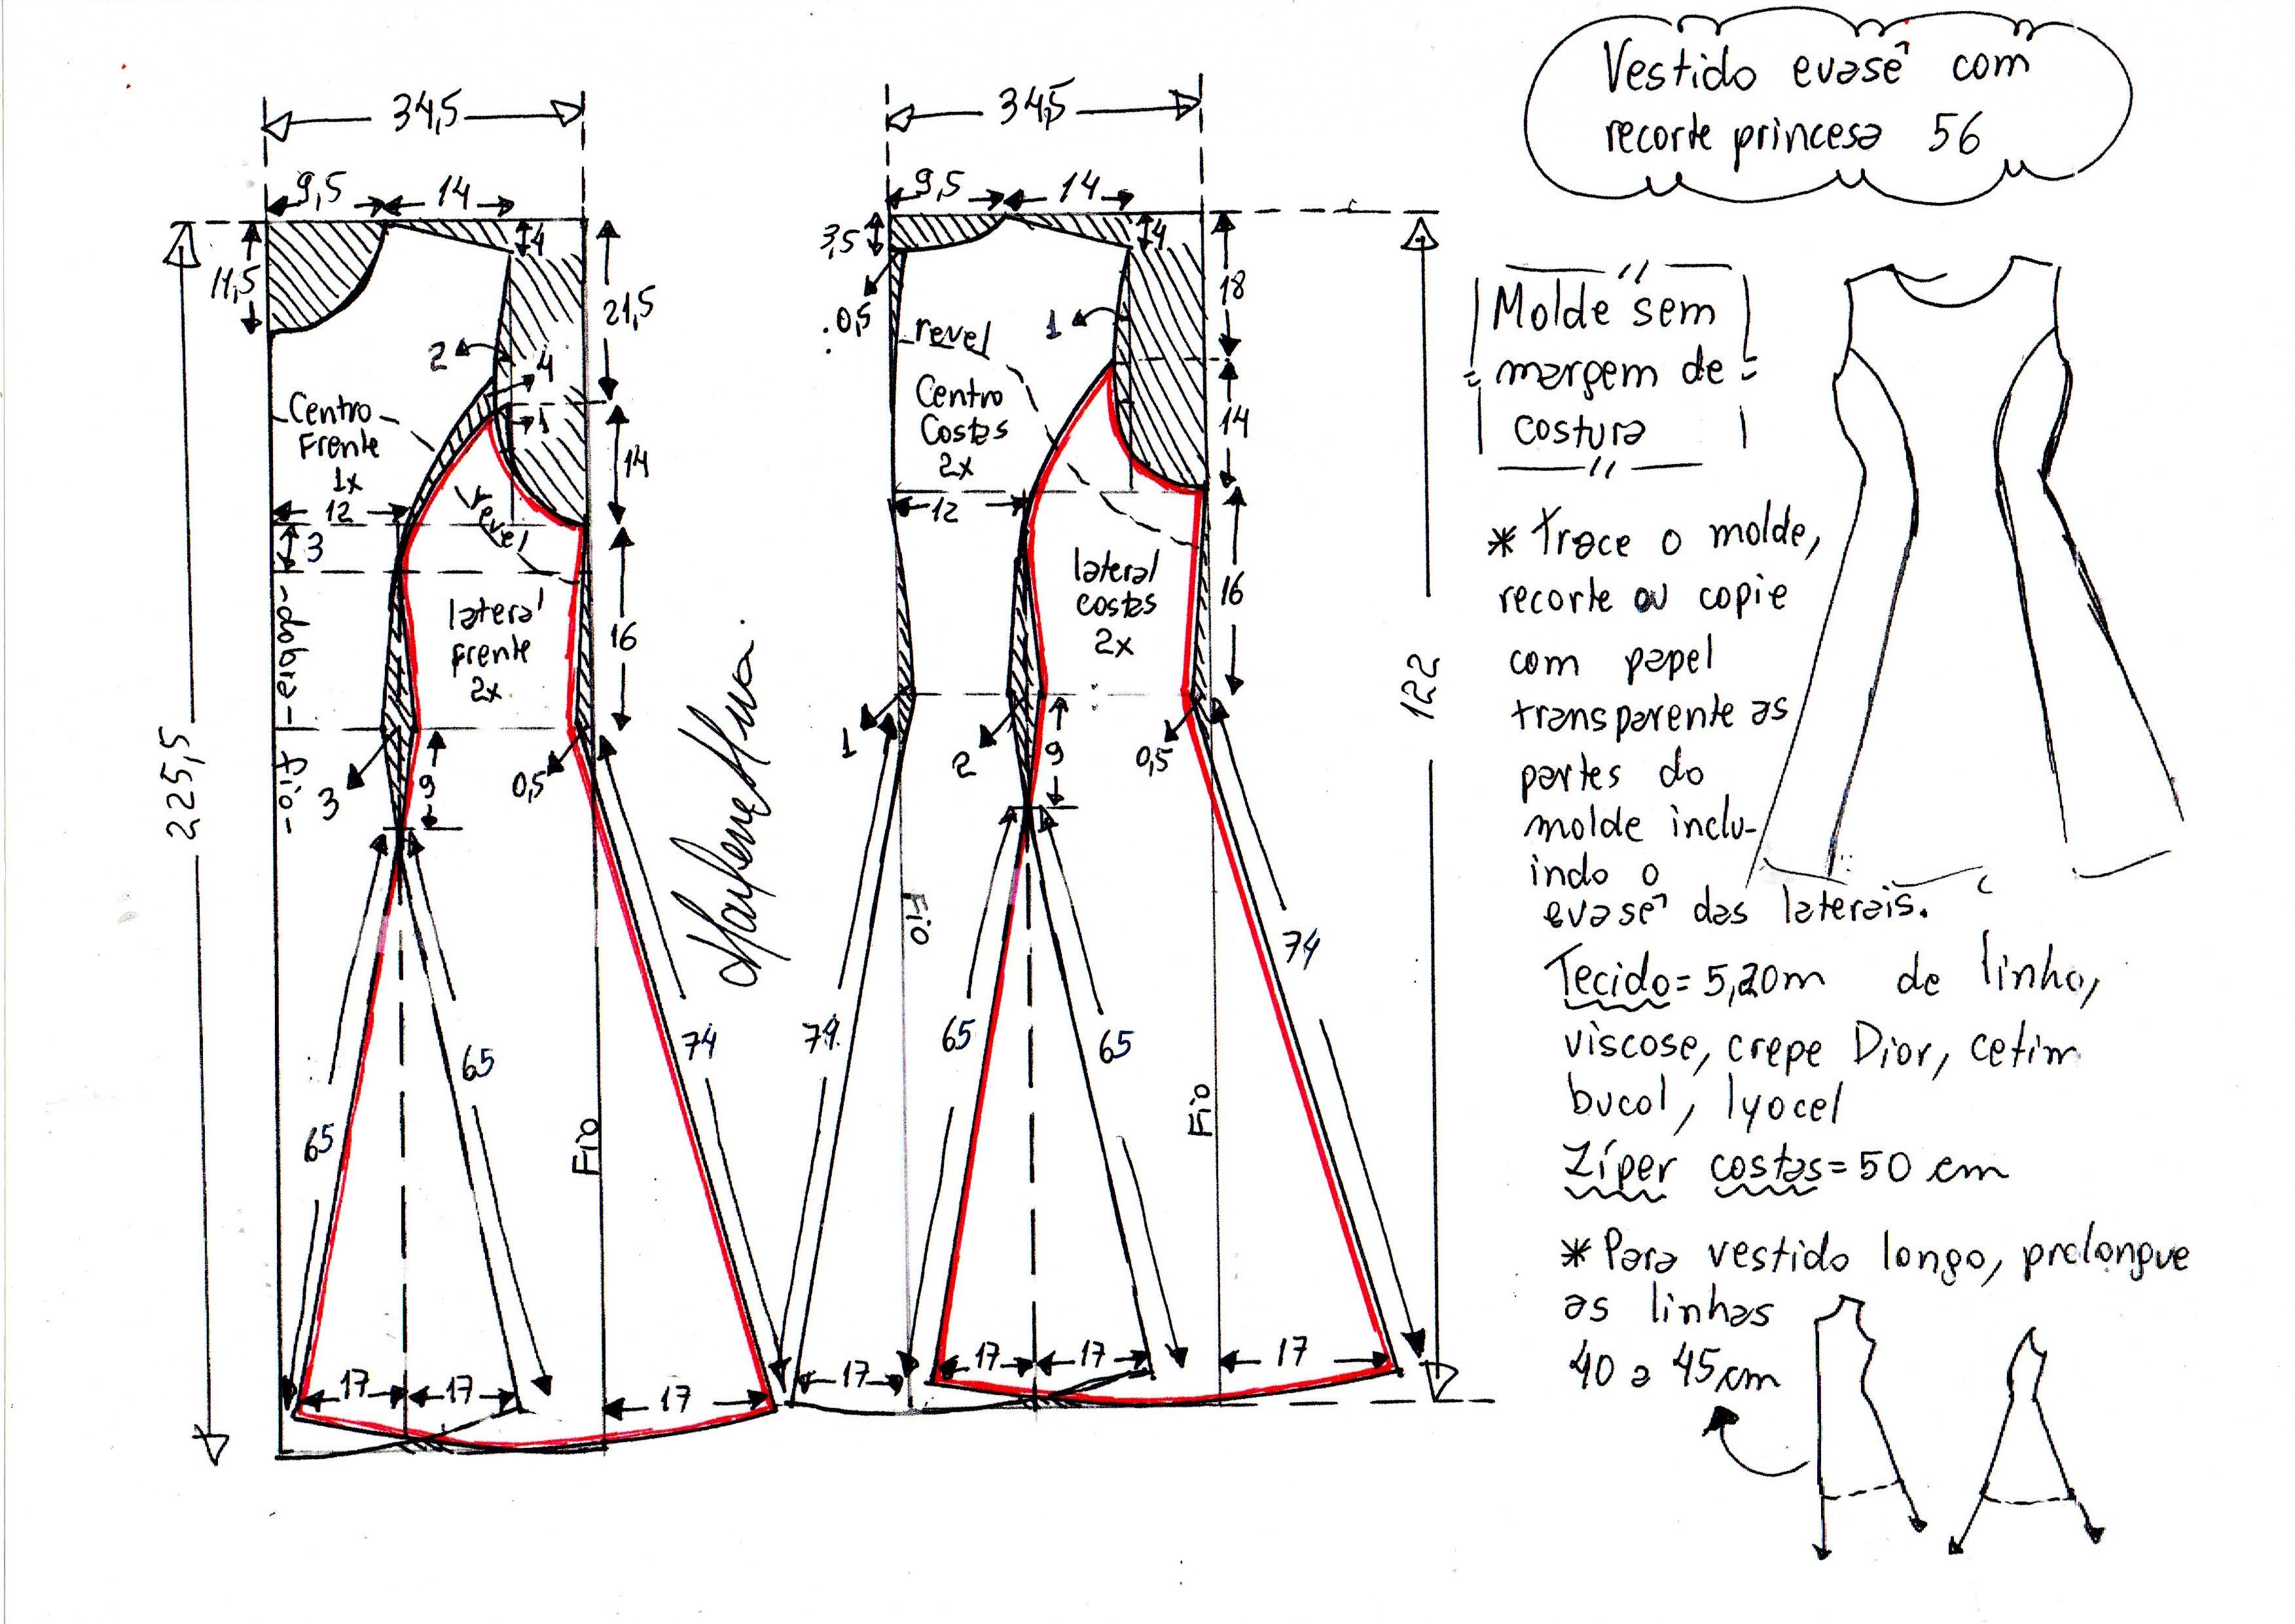 Vestido evasê com
recorte princesa 56
34,5
9,5
14
11,5
4
21,5
2
4
1
Centro
Frente
1x
14
12
3
revel
lateral
frente
2x
16
-dobra-
fio-
3
9
0,5
225,5
65
65
74
Fio
17
17
17
34,5
9,5
14
3,5
4
18
.0,5
revel
1
Centro
Costas
2x
14
12
lateral
costas
2x
16
1
2
9
0,5
122
Fio
74
65
65
74
Fio
17
17
17
17
Molde sem
margem de
costura
* Trace o molde,
recorte ou copie
com papel
transparente as
partes do
molde inclu-
indo o
evasê das laterais.
Tecido= 5,20m de linho,
viscose, crepe Dior, cetim
bucol, lyocel
Zíper costas= 50 cm
* Para vestido longo, prolongue
as linhas
40 a 45cm